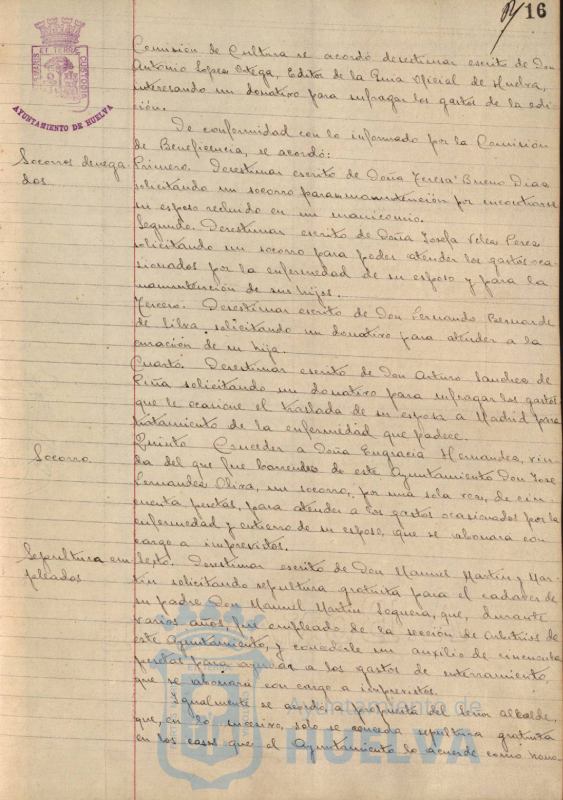 16
AYUNTAMIENTO DE HUELVA
Comisión de Cultura se acordó desestimar escrito de Don
Antonio Lopez Ortega, Editor de la Guia Oficial de Huelva,
interesando un donativo para sufragar los gastos de la edi-
ción.
De conformidad con lo informado por la Comisión
de Beneficencia, se acordó:
Socorros denega-
dos
Primero. Desestimar escrito de Doña Teresa Bueno Diaz
solicitando un socorro para manutención por encontrarse
su esposo recluido en un manicomio.
Segundo. Desestimar escrito de Doña Josefa Velez Perez
solicitando un socorro para poder atender los gastos oca-
sionados por la enfermedad de su esposo y para la
manutención de sus hijos.
Tercero. Desestimar escrito de Don Fernando Bernarde
de Silva solicitando un donativo para atender a la
curación de su hija.
Cuarto. Desestimar escrito de Don Arturo Sanchez de
Piña solicitando un donativo para sufragar los gastos
que le ocasione el traslado de su esposa a Madrid para
tratamiento de la enfermedad que padece.
Socorro.
Quinto. Conceder a Doña Engracia Hernandez, viu-
da del que fue barrendero de este Ayuntamiento Don José
Fernandez Oliva, un socorro, por una sola vez, de cin-
cuenta pesetas, para atender a los gastos ocasionados por la
enfermedad y entierro de su esposo, que se abonara con
cargo a imprevistos.
Sepultura em-
pleados
Sexto. Desestimar escrito de Don Manuel Martin y Mar-
tin solicitando sepultura gratuita para el cadaver de
su padre Don Manuel Martin Seguera, que, durante
varios años, fue empleado de la sección de Arbitrios de
este Ayuntamiento, y concederle un auxilio de cincuenta
pesetas para ayudar a los gastos de enterramiento,
que se abonará con cargo a imprevistos.
Igualmente se acordó, a propuesta del señor alcalde,
que, en lo sucesivo, solo se conceda sepultura gratuita
en los casos que el Ayuntamiento lo acuerde como hono-
Ayuntamiento de
HUELVA